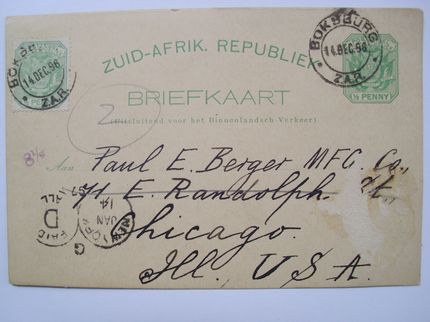 ZUID-AFRIK. REPUBLIEK
BOKSBURG
14.DEC.96
Z.A.R.
PENNY
BOKSBURG
14.DEC.96
Z.A.R.
½ PENNY
BRIEFKAART
2
(Uitsluitend voor het Binnenlandsch-Verkeer.)
8¼
Aan
Paul E. Berger MFG. Co.
71 E. Randolph St
Chicago
Ill. U.S.A.
PAID
D
ALL
G
NEW YORK
JAN
14